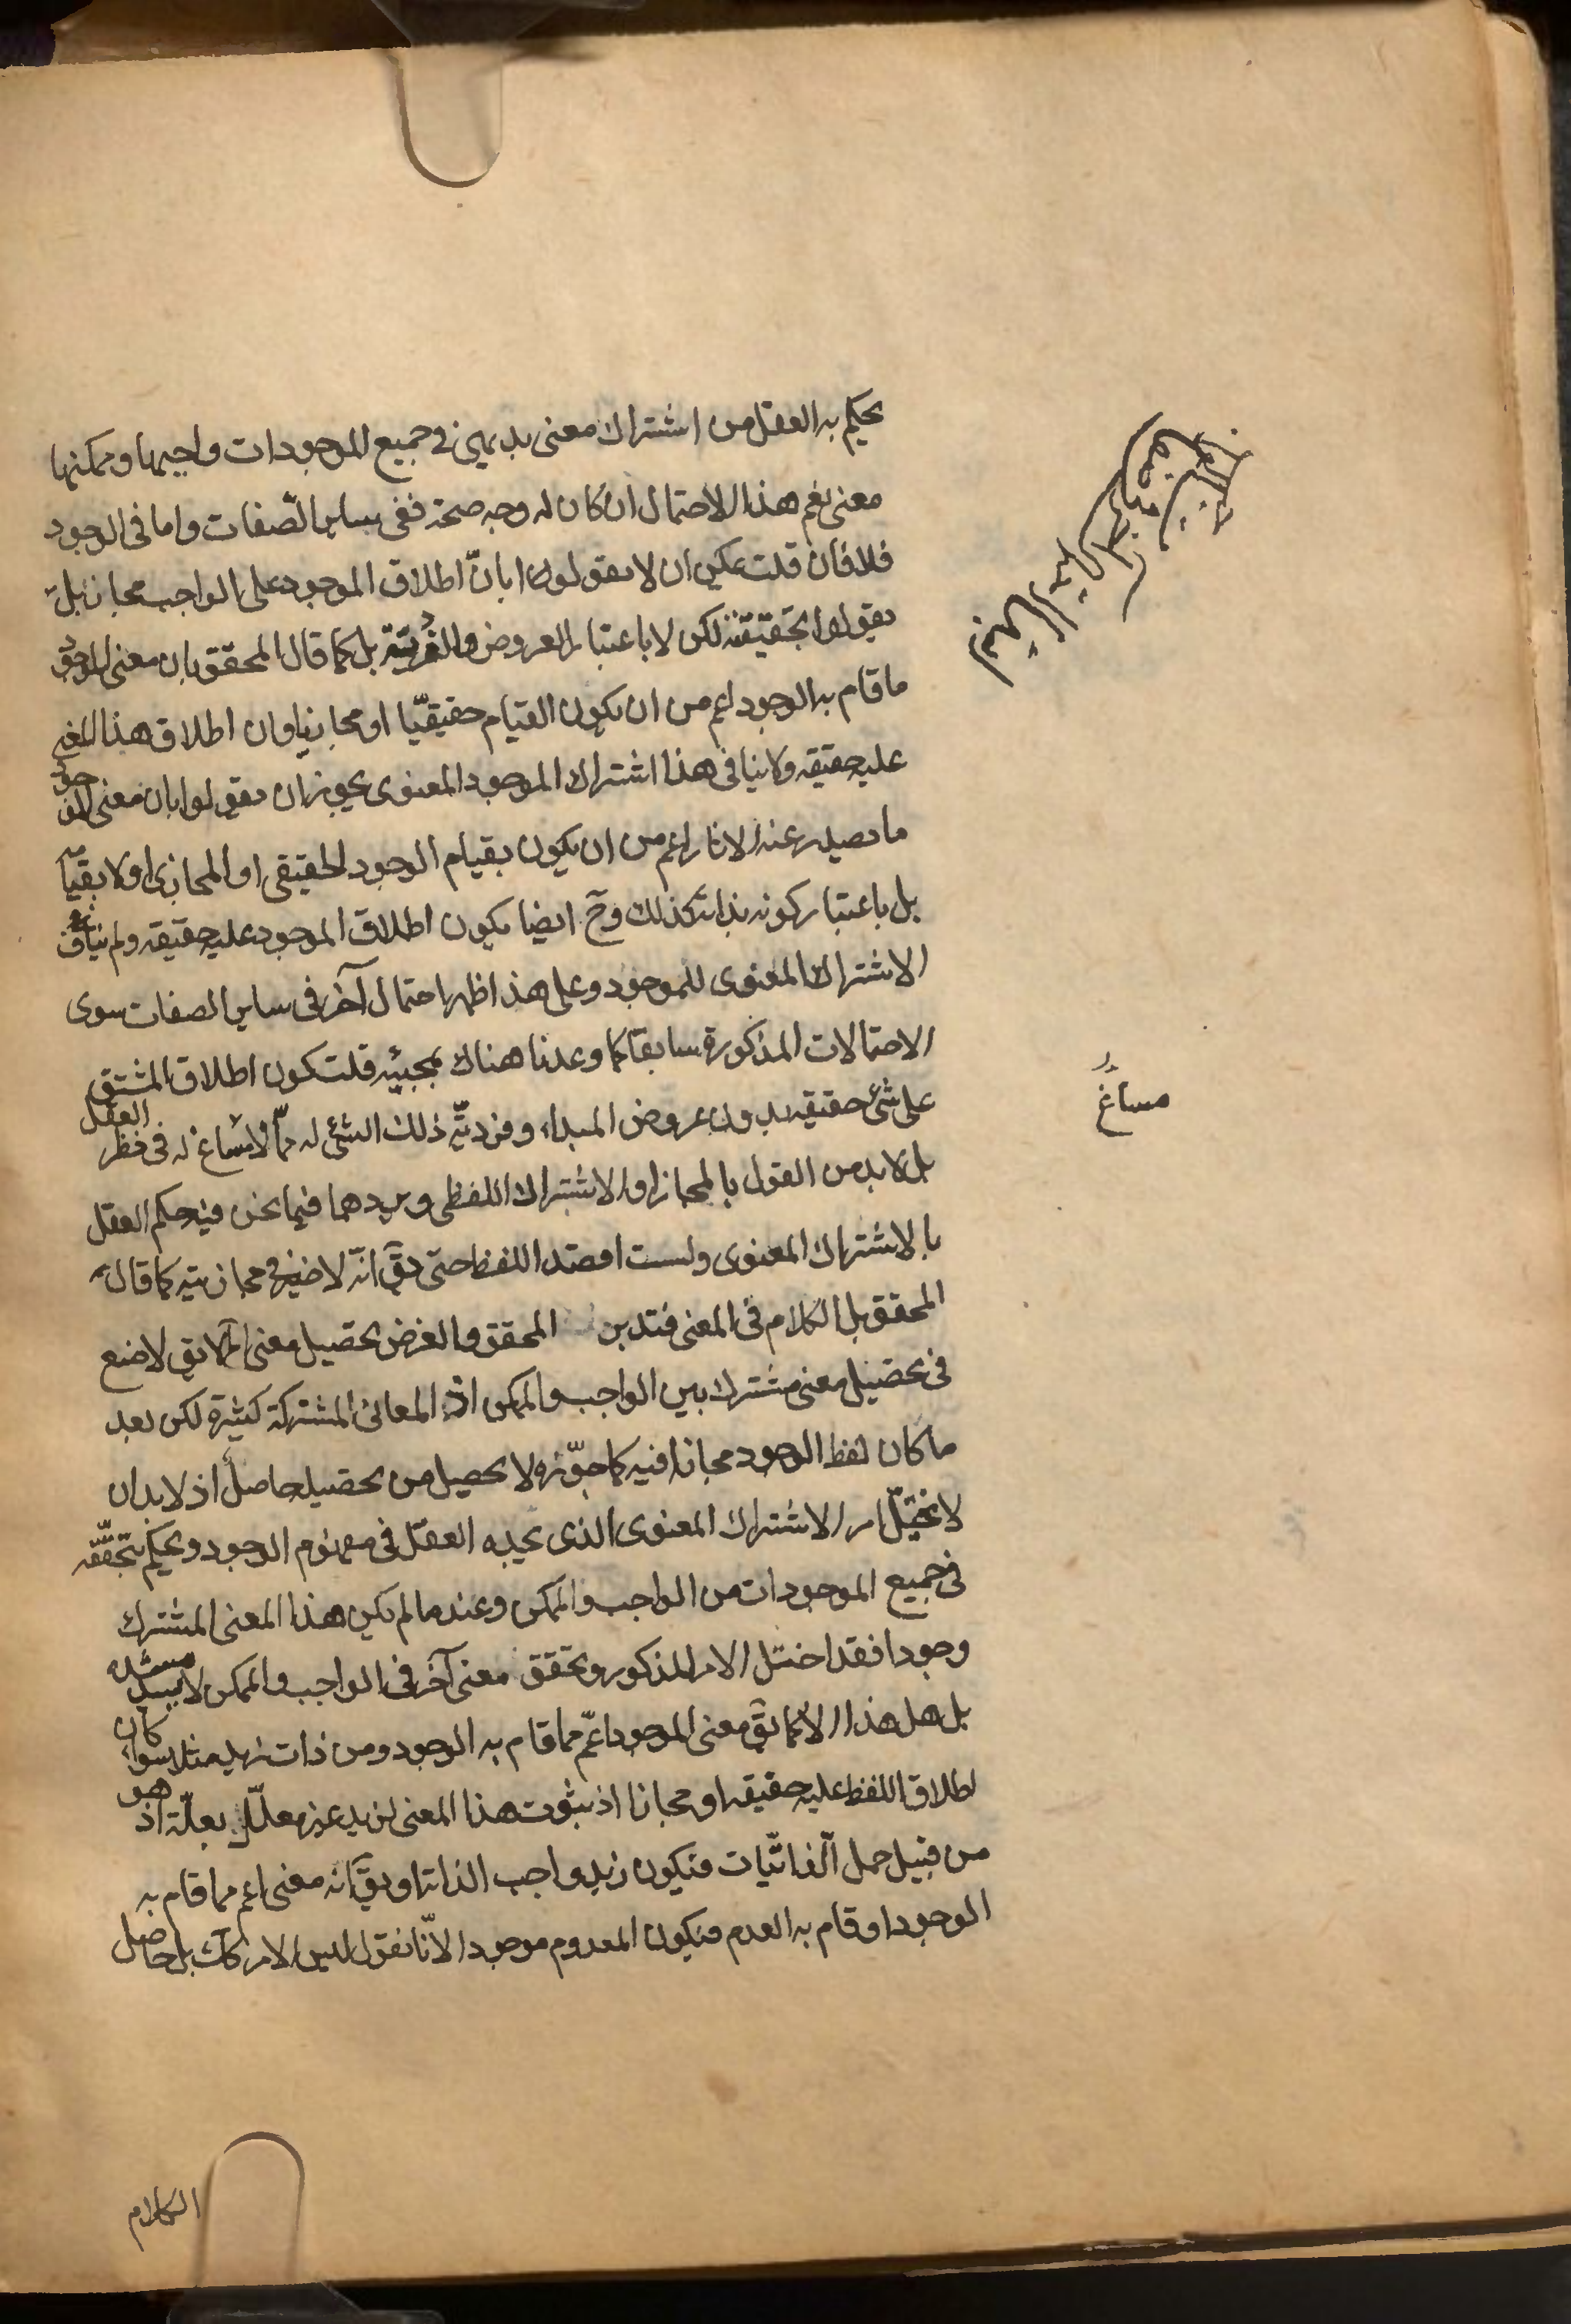 يحكم به العقل من اشتراك معنى بديهي في جميع الموجودات واجبها وممكنها
معنى نعم هذا الاحتمال ان كان له وجه صحة ففي ساير الصفات واما في الوجود
فلا فان قلت يمكن ان لا يقولوا بانّ اطلاق الموجود على الواجب مجاز بل
يقولوا بحقيقته لكن لا باعتبار العروض والفرديّة بل كما قال المحقق بان معنى الموجود
ما قام به الوجود اعم من ان يكون القيام حقيقيّا او مجازيا وان اطلاق هذا المعنى
عليه حقيقه ولا ينافى هذا اشتراك الموجود المعنوى يجوز ان يقولوا بان معنى الموجود
ما يصدر عنه الاثار اعم من ان يكون بقيام الوجود الحقيقى او المجازى او لا بقيامه
بل باعتبار كونه بذاته كذلك وح ايضا يكون اطلاق الموجود عليه حقيقه ولم يناف
الاشتراك المعنوى للموجود وعلى هذا ظهر احتمال آخر فى ساير الصفات سوى
الاحتمالات المذكورة سابقا كما وعدنا هناك بمجيئه قلت كون اطلاق المشتق
على شئ حقيقه بدون عروض المبداء وفرديّة ذلك الشئ له ممّا لا مساغ له فى نظر العقل
بل لا بد من القول بالمجاز او الاشتراك اللفظى ويردهما فيما نحن فيه حكم العقل
بالاشتراك المعنوى ولست اقصد اللفظ حتى يقَ انّه لا ضير فى مجازيته كما قال
المحقق بل الكلام فى المعنى فتدبر المحقق والغرض تحصيل معنى لا يق لا ضع
فى تحصيل معنى مشترك بين الواجب والممكن اذ المعانى المشتركة كثيرة لكن بعد
ما كان لفظ الوجود مجازا فيه كما جوّزه لا يحصل من تحصيله حاصل اذ لا بد ان
لا يختلّ امر الاشتراك المعنوى الذى يجده العقل فى مفهوم الوجود ويحكم بتحققه
فى جميع الموجودات من الواجب والممكن وعند ما لم يكن هذا المعنى المشترك
وجودا فقد اختل الامر المذكور وتحقق معنى آخر فى الواجب والممكن لا يسده
بل هل هذا الا كما يقَ معنى الموجود اعمّ مما قام به الوجود ومن ذات زيد مثلا سواء كان
اطلاق اللفظ عليه حقيقه او مجازا اذ ثبوت هذا المعنى لزيد غير معلّل بعلّة اذ هو
من قبيل حمل الذاتيّات فيكون زيد واجب الذات او يقَ انه معنى اعم مما قام به
الوجود او قام به العدم فيكون المعدوم موجودا لانّا نقول ليس الامر كك بل حاصل
مساغ
الكلام